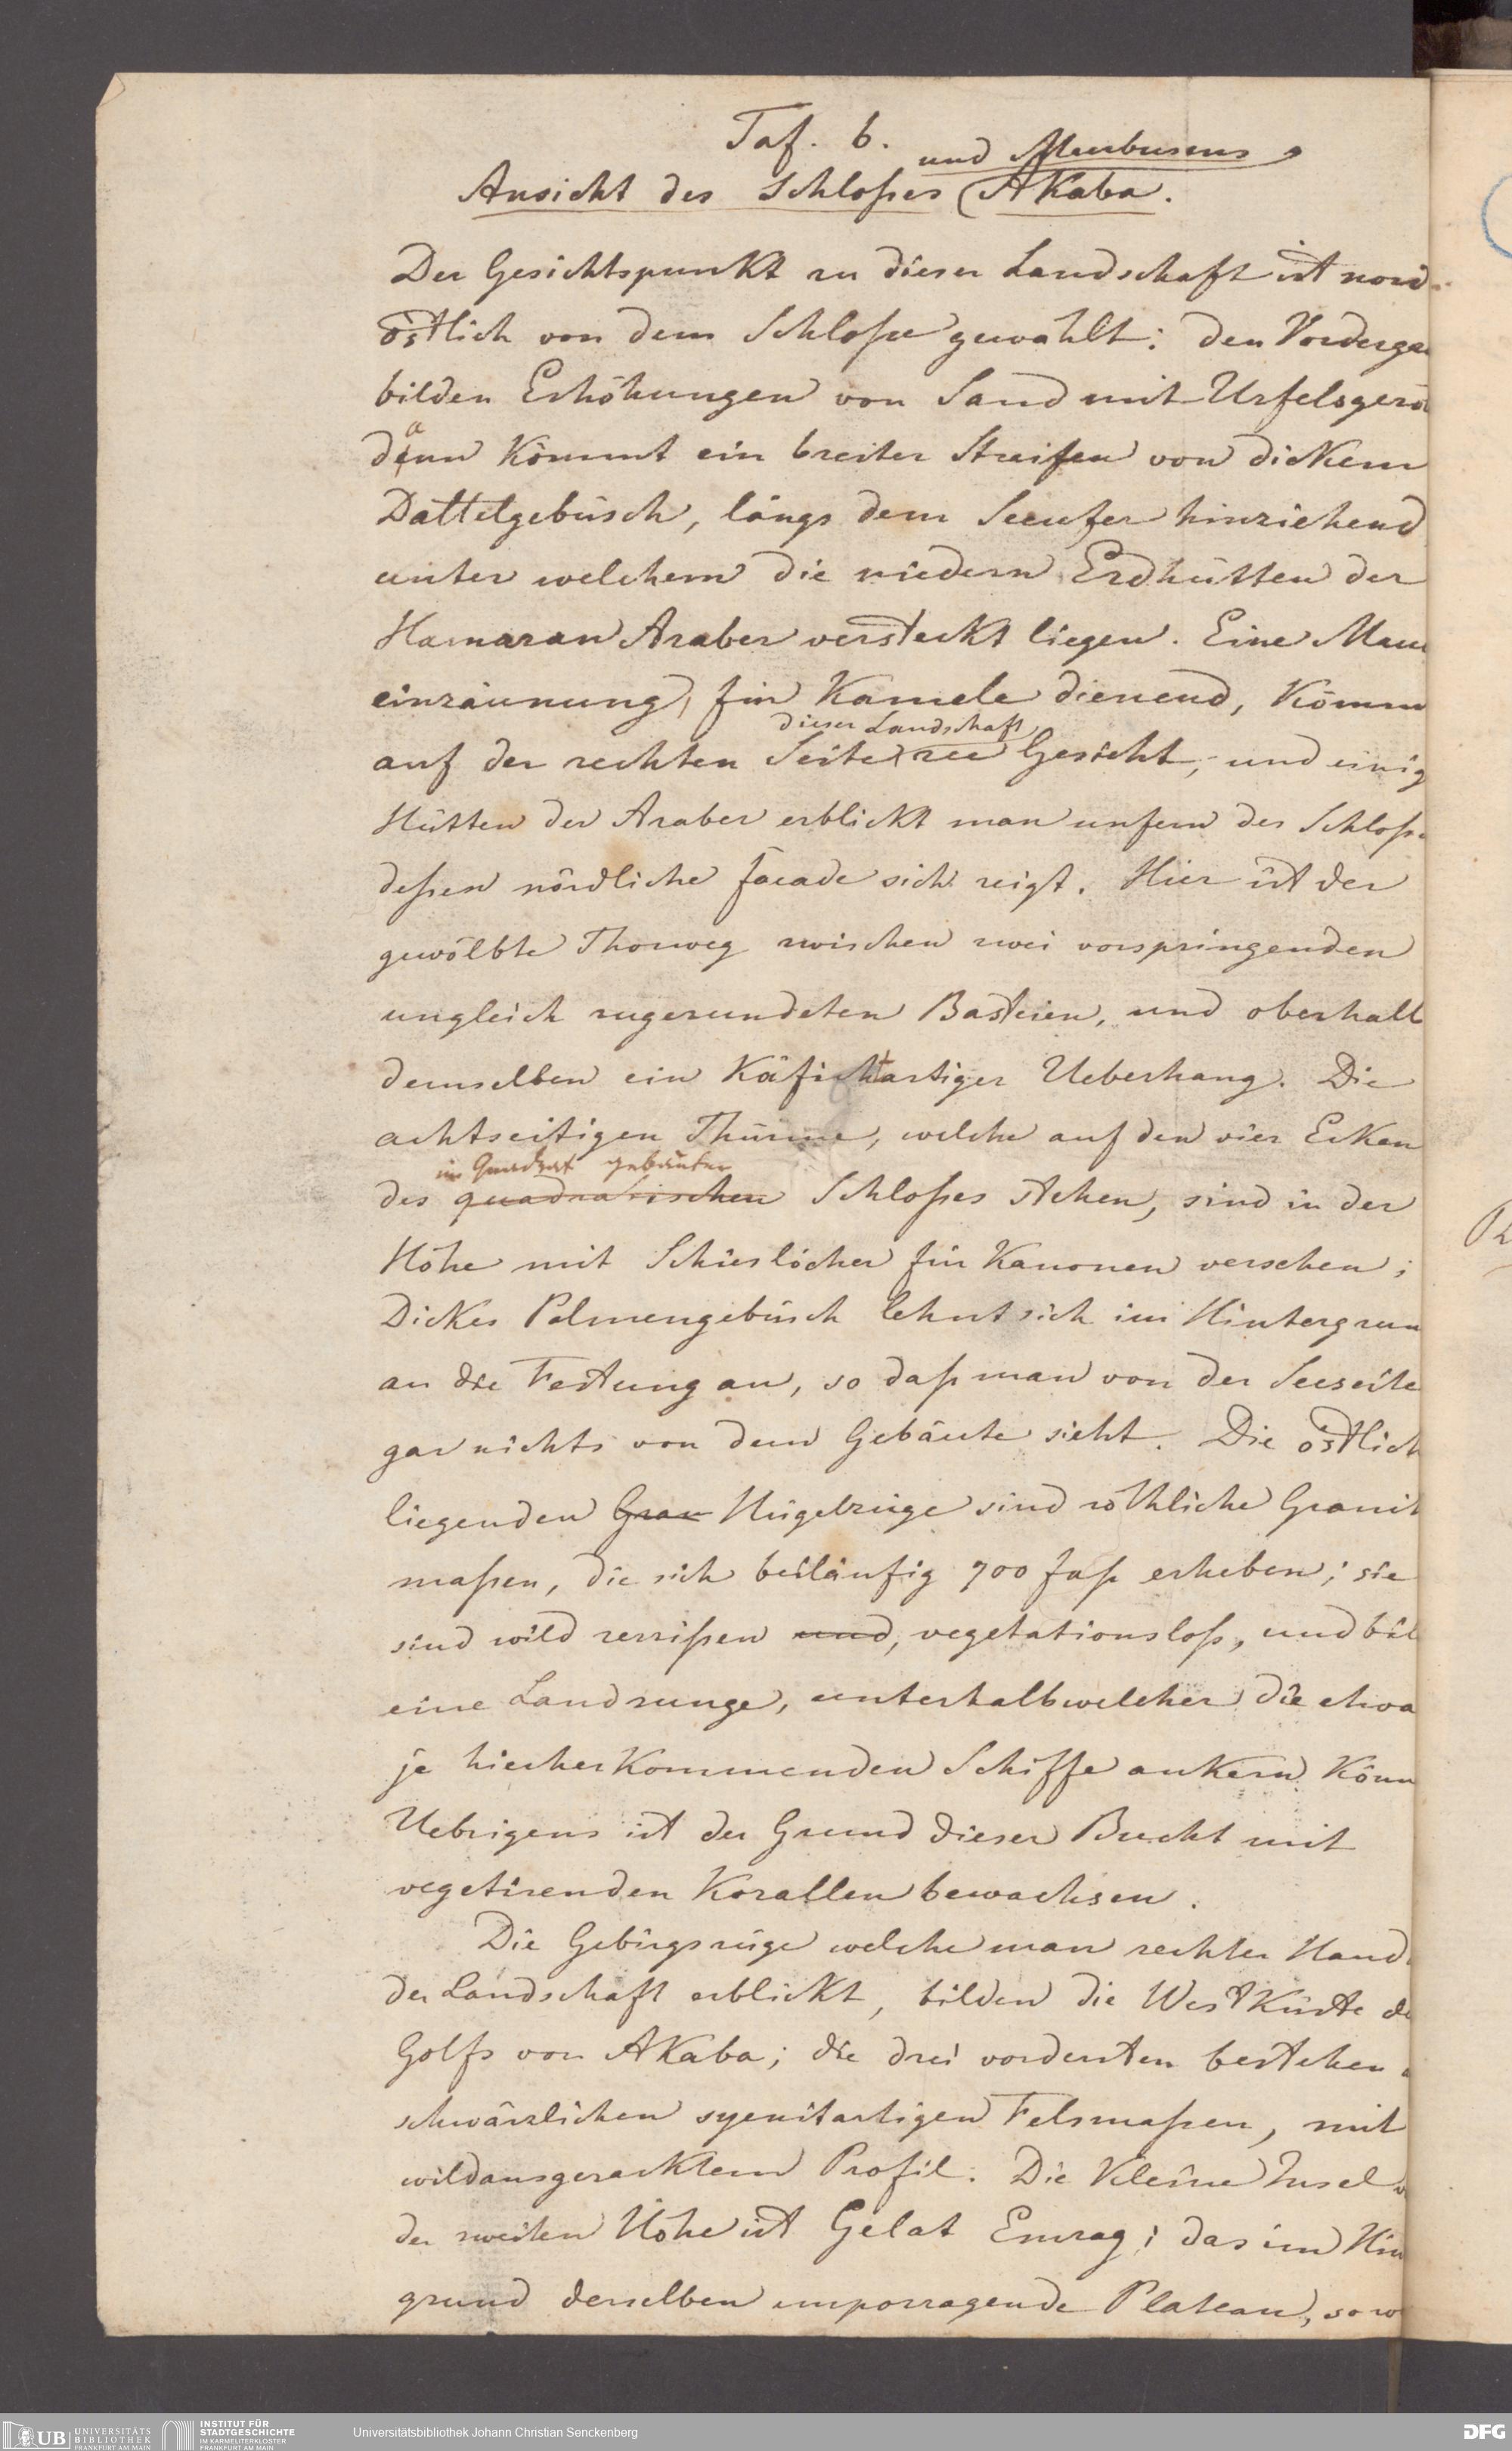 Taf. 6.
und Meerbusens
Ansicht des Schloßes Akaba.
Der Gesichtspunkt zu dieser Landschaft ist nord-
östlich von dem Schloße gewählt: den Vordergru
bilden Erhöhungen von Sand mit Urfelsgerö
dann kömmt ein breiter Streifen von dickem
Dattelgebüsch, längs dem Seeufer hinziehend
unter welchem die niedern Erdhütten der
Hamaran Araber versteckt liegen. Eine Maue
einzäunung, für Kamele dienend, kömm
dieser Landschaft
auf der rechten Seite zu Gesicht, und einig
Hütten der Araber erblickt man unfern des Schloße
deßen nördliche façade sich zeigt. Hier ist der
gewölbte Thorweg zwischen zwei vorspringenden
ungleich zugerundeten Basteien, und oberhalb
demselben ein Käfichtartiger Ueberhang. Die
achtseitigen Thürme, welche auf den vier Ecken
im Quadrat gebauten
des quadratischen Schloßes stehen, sind in der
Höhe mit Schieslöcher für Kanonen versehen;
Dickes Palmengebüsch lehnt sich im Hintergrun
an die Festung an, so daß man von der Seeseite
gar nichts von dem Gebäute sieht. Die östlich
liegenden Gran Hügelzüge sind röthliche Granit
maßen, die sich beiläufig 700 fuß erheben; sie
sind wild zerrißen und, vegetationsloß, und bil
eine Landzunge, unterhalb welcher die etwa
je hierher kommenden Schiffe ankern könn
Uebrigens ist der Grund dieser Bucht mit
vegetirenden Korallen bewachsen.
Die Gebirgszüge welche man rechter Hand
der Landschaft erblickt, bilden die Westküste de
Golfs von Akaba; die drei vordersten bestehen
schwärzlichen syenitartigen Felsmaßen, mit
wildausgezacktem Profil. Die kleine Insel
der zweiten Höhe ist Gelat Emrag; das im Hin
grund derselben emporragende Plateau, sow
UB UNIVERSITÄTS
BIBLIOTHEK
FRANKFURT AM MAIN
INSTITUT FÜR
STADTGESCHICHTE
IM KARMELITERKLOSTER
FRANKFURT AM MAIN
Universitätsbibliothek Johann Christian Senckenberg
DFG